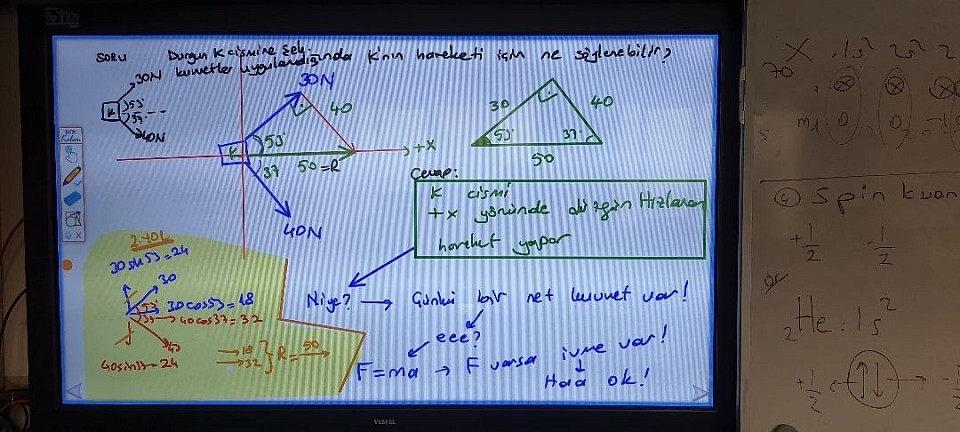 SORU Durgun K cismine şek.
kuvvetler uygulandığında K'nın hareketi için ne söylenebilir?
30N
K 53° 37°
40N
30N
40
53°
K
37 50=R
+X
40N
30
40
53° 37°
50
Cevap:
K cismi
+x yönünde düzgün Hızlanan
hareket yapar
2.YOL
30 sin 53=24
30
53° 30cos53=18
40cos37=32
40
40sin37=24
18
32 } R=50
Niye? → Çünkü bir net kuvvet var!
eee?
F=ma → F varsa ivme var!
Haa ok!
VESTEL
X 1s² 2s² 2
④ Spin kuan
+1/2 -1/2
₂He: 1s²
+1/2